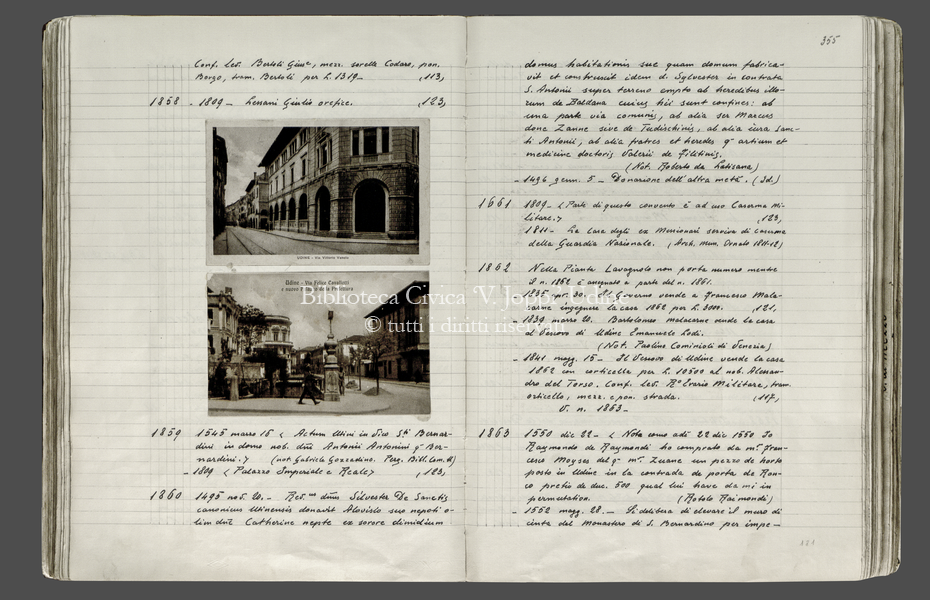 Conf. lev. Bertoli Giuse, mezz. sorelle Codaro, pon.
Borgo, tram. Bertoli per L. 1319— (113,
1858 - 1809 — Lessani Giulio orefice. (123,
UDINE - Via Vittorio Veneto
Udine - Via Felice Cavallotti
e nuovo Palazzo della Prefettura
1859 1545 marzo 15 < Actum Utini in Vico Sti Bernar-
dini in domo nob. dni Antonii Antonini qm Ber-
nardini.> (not. Gabriele Gozzadino. Perg. Bibl. Com. Ud)
- 1809 < Palazzo Imperiale e Reale> (123,
1860 1495 nov. 20. — Revdus dnus Silvester De Sanctis
canonicus Utinensis donavit Alovisio suo nepoti o-
lim dne Catherine nepte ex sorore dimidium
355
domus habitationis sue quam domum fabrica-
vit et construxit idem d. Sylvester in contrata
S. Antonii super terreno empto ab heredibus illo-
rum de Baldana cuius hii sunt confines: ab
una parte via comunis, ab alia ser Marcus
done Zanne sive de Tudischinis, ab alia iura San-
ti Antonii, ab alia fratres et heredes qm artium et
medicine doctoris Valerii de Filitinis.
(Not. Roberto da Latisana)
- 1496 genn. 5 — Donazione dell'altra metà. (Id.)
1661 1809 — < Parte di questo convento è ad uso Caserma Mi-
litare.> (123,
1811 — La Casa degli ex Missionari serviva di caserma
della Guardia Nazionale. (Arch. Mun. Donato 1811-12)
1862 Nella Pianta Lavagnolo non porta numero mentre
il n. 1862 è assegnato a parte del n. 1861.
- 1835 30. Il Governo vende a Francesco Mala-
carne ingegnere la casa 1862 per L. 3000. (121,
- 1839 marzo 20. Bartolomeo Malacarne vende la casa
al Vescovo di Udine Emanuele Lodi.
(Not. Paolino Cominioli di Venezia)
- 1841 magg. 15 — Il Vescovo di Udine vende la casa
1862 con corticella per L. 10500 al nob. Alessan-
dro del Torso. Conf. lev. Ro Erario Militare, tram.
orticello, mezz. e pon. strada. (117,
V. n. 1863 —
1863 1550 dic 22 — < Nota como adi 22 dic 1550 Io
Raymondo de Raymondi ho comprato da mr. Fran-
cesco Moyses del qm mr. Zuane un pezzo de horto
posto in Udine in la contrada de porta de Ron-
co pretio de duc. 500 qual lui have da mi in
permutation. (Rotolo Raimondi)
- 1552 magg. 28. — Si delibera di elevare il muro di
cinta del Monastero di S. Bernardino per impe-
181
Biblioteca Civica 'V. Joppi' Udine
© tutti i diritti riservati